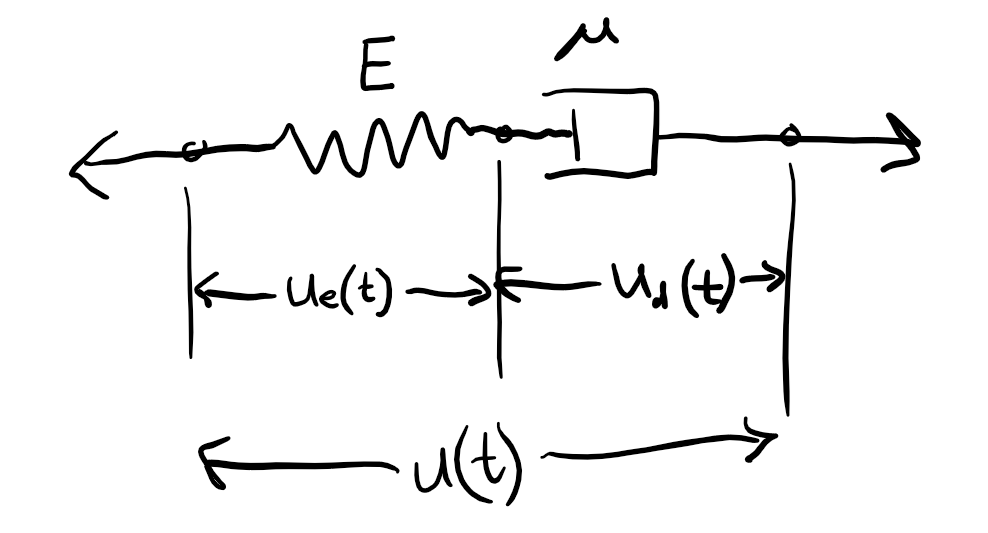 E μ
u_e(t) u_d(t)
u(t)